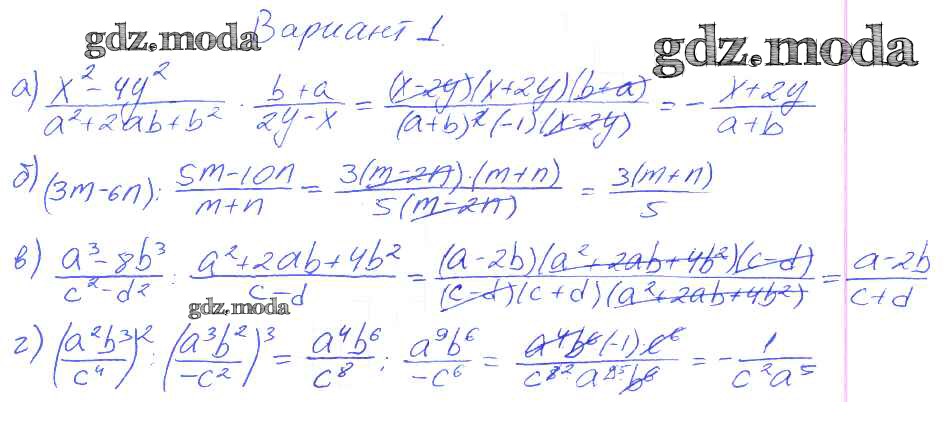 Вариант 1.
gdz.moda
gdz.moda
а) (x² - 4y²)/(a² + 2ab + b²) · (b + a)/(2y - x) = ((x - 2y)(x + 2y)(b + a))/((a + b)²(-1)(x - 2y)) = - (x + 2y)/(a + b)
б) (3m - 6n) : (5m - 10n)/(m + n) = (3(m - 2n)·(m + n))/(5(m - 2n)) = 3(m + n)/5
в) (a³ - 8b³)/(c² - d²) : (a² + 2ab + 4b²)/(c - d) = ((a - 2b)(a² + 2ab + 4b²)(c - d))/((c - d)(c + d)(a² + 2ab + 4b²)) = (a - 2b)/(c + d)
gdz.moda
г) (a²b³/c⁴)² : (a³b²/-c²)³ = a⁴b⁶/c⁸ : a⁹b⁶/-c⁶ = (a⁴b⁶(-1)c⁶)/(c⁸ ² a⁹ ⁵ b⁶) = - 1/(c²a⁵)